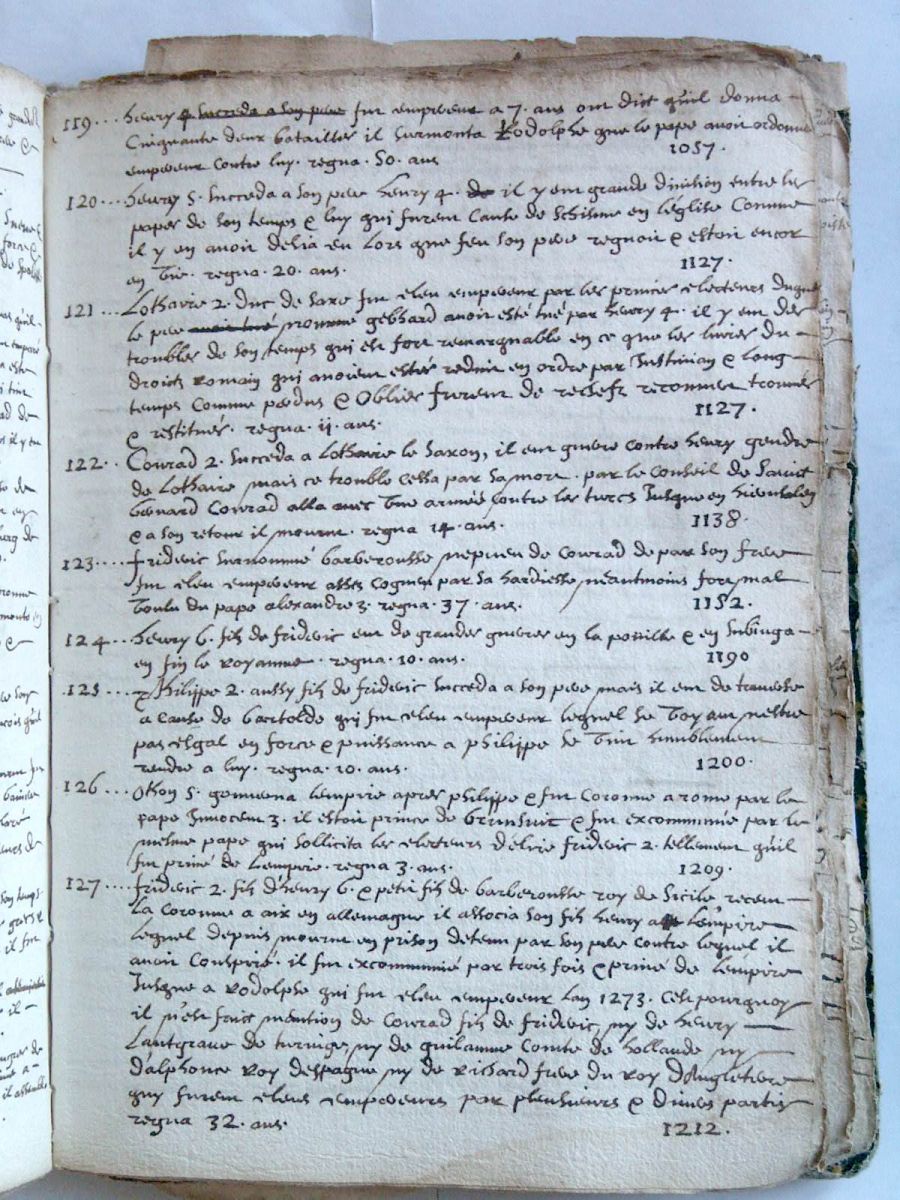 119... henry 4 succeda a son pere fut empereur a 7. ans ont dict quil donna
Cinquante deux batailles il surmonta Rodolphe que le pape avoit ordonne
empereur contre luy. regna. 50. ans 1057.
120... henry 5. succeda a son pere henry 4. il y eut grande division entre les
papes de son temps & luy qui furent cause de schisme en leglise Comme
il y en avoit desia eu lors que feu son pere regnoit & estoit encor
en vie. regna. 20. ans. 1127.
121... Lothaire 2. duc de saxe fut eleu empereur par les princes electeurs duquel
le pere avoit tué nommé gebhard avoit esté tué par henry 4. il y eut des
troubles de son temps qui est fort remarquable en ce que les livres du
droict romain qui avoient estés reduit en ordre par Justinian & long
temps Comme perdus & Obliés furent de rechefz trouvés
& restitués. regna. 11. ans. 1127.
122.. Conrad 2. succeda a Lothaire le saxon, il eut guerre contre henry gendre
de Lothaire mais ce trouble cessa par sa mort. par le conseil de sainct
bernard Conrad alla avec une armée contre les turcs Jusque en hierusalem
& a son retour il mourut. regna 14. ans. 1138.
123.... fridevic surnommé barberousse nepveu de Conrad de par son frere
fut eleu empereur asses cogneu par sa hardiesse neantmoins fort mal
voulu du pape alexandre 3. regna. 37. ans. 1152.
124... henry 6. filz de frideric eut de grandes guerres en la pouille & en subiuga
en fin le royaume. regna. 10. ans. 1190
125... Philippe 2. aussy filz de frideric succeda a son pere mais il eut de traverse
a cause de bartolde qui fut eleu empereur lequel se voyant nestre
pas esgal en force & puissance a philippe se vint humblement
rendre a luy. regna. 10. ans. 1200.
126... Othon 5. gouverna lempire apres philippe & fut coronné a rome par le
pape Innocent 3. il estoit prince de brunsuic & fut excommunié par le
mesme pape qui sollicita les electeurs d'elire frideric 2. tellement quil
fut privé de Lempire. regna 3. ans. 1209.
127.... frideric 2. filz d'henry 6. & petit filz de barberousse roy de Sicile receut
la coronne a aix en allemagne il associa son filz henry a lempire
lequel depuis mourut en prison detenu par son pere contre lequel il
avoit conspiré. il fut excommunié par trois fois & privé de lempire
Jusque a rodolphe qui fut eleu empereur lan 1273. Cest pourquoy
il n'est faict mention de Conrad filz de frideric, ny de henry
Lantgrave de turinge, ny de guilaumme Comte de hollande ny
d'alphonce roy despagne ny de richard frere du roy d'Angleterre
quy furent eleus empereurs par plusieurs & divers partis
regna 32. ans. 1212.